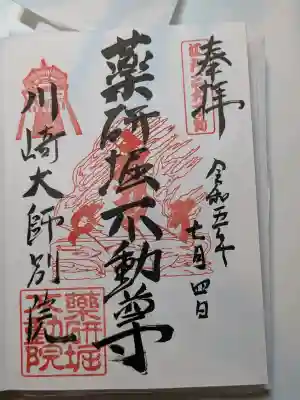 奉拝
令和五年
七月四日
薬研堀不動尊
川崎大師別院
薬研堀
不動院